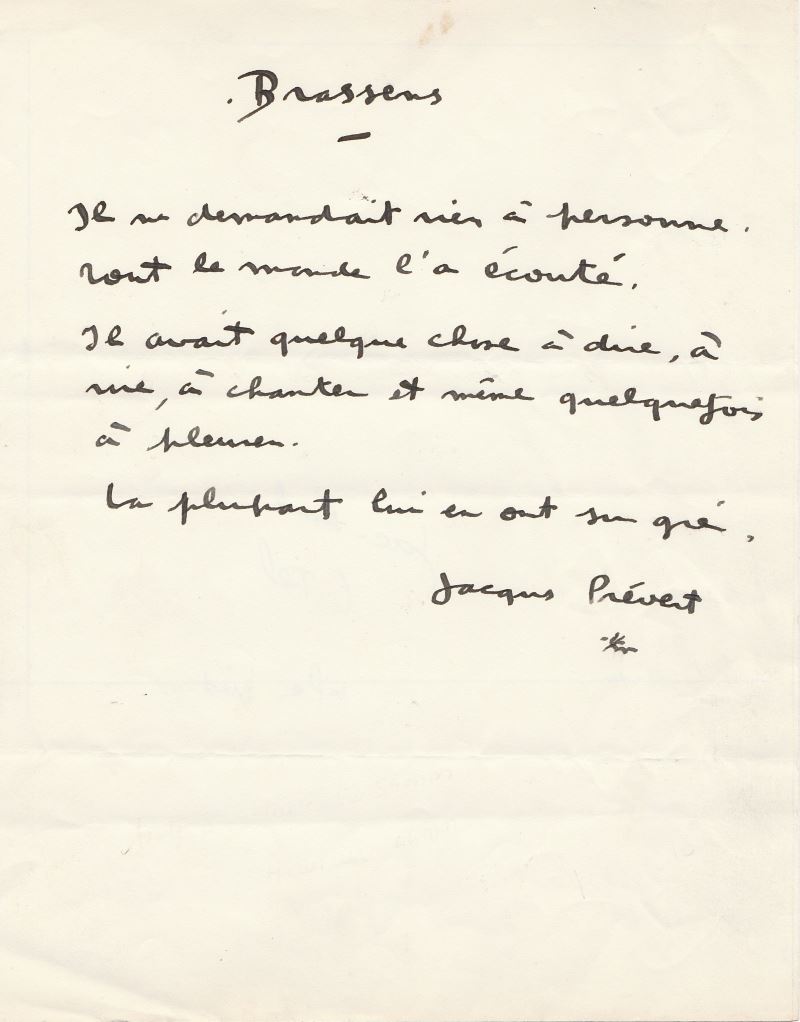 Brassens
Il ne demandait rien à personne.
Tout le monde l'a écouté.
Il avait quelque chose à dire, à
rire, à chanter et même quelquefois
à pleurer.
La plupart lui en ont su gré.
Jacques Prévert